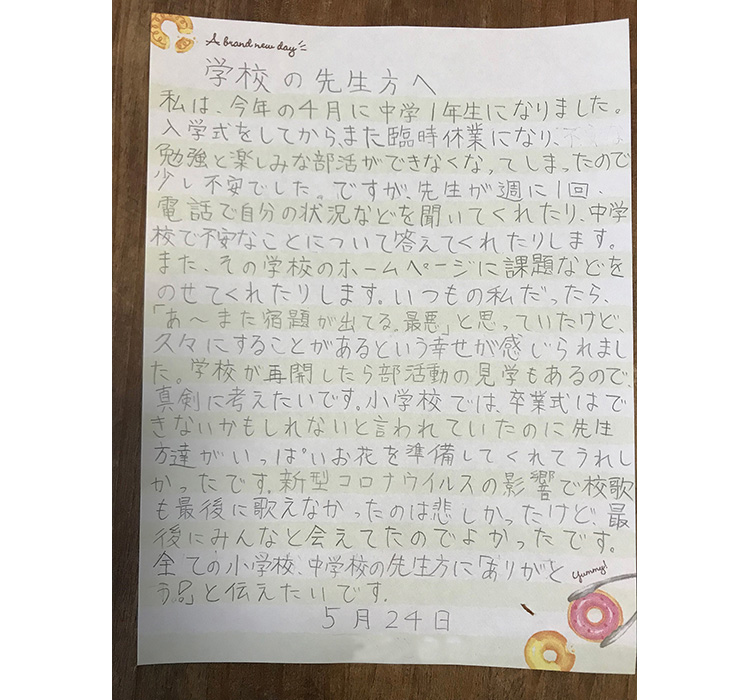 A brand new day
学校の先生方へ
私は、今年の4月に中学1年生になりました。
入学式をしてから、また臨時休業になり、
勉強と楽しみな部活ができなくなってしまったので
少し不安でした。ですが、先生が週に1回、
電話で自分の状況などを聞いてくれたり、中学
校で不安なことについて答えてくれたりします。
また、その学校のホームページに課題などを
のせてくれたりします。いつもの私だったら、
「あ〜また宿題が出てる。最悪」と思っていたけど、
久々にすることがあるという幸せが感じられまし
た。学校が再開したら部活動の見学もあるので、
真剣に考えたいです。小学校では、卒業式はで
きないかもしれないと言われていたのに先生
方達がいっぱいお花を準備してくれてうれし
かったです。新型コロナウイルスの影響で校歌
も最後に歌えなかったのは悲しかったけど、最
後にみんなと会えてたのでよかったです。
全ての小学校、中学校の先生方に「ありがと
う!」と伝えたいです。
Yummy!
5月24日